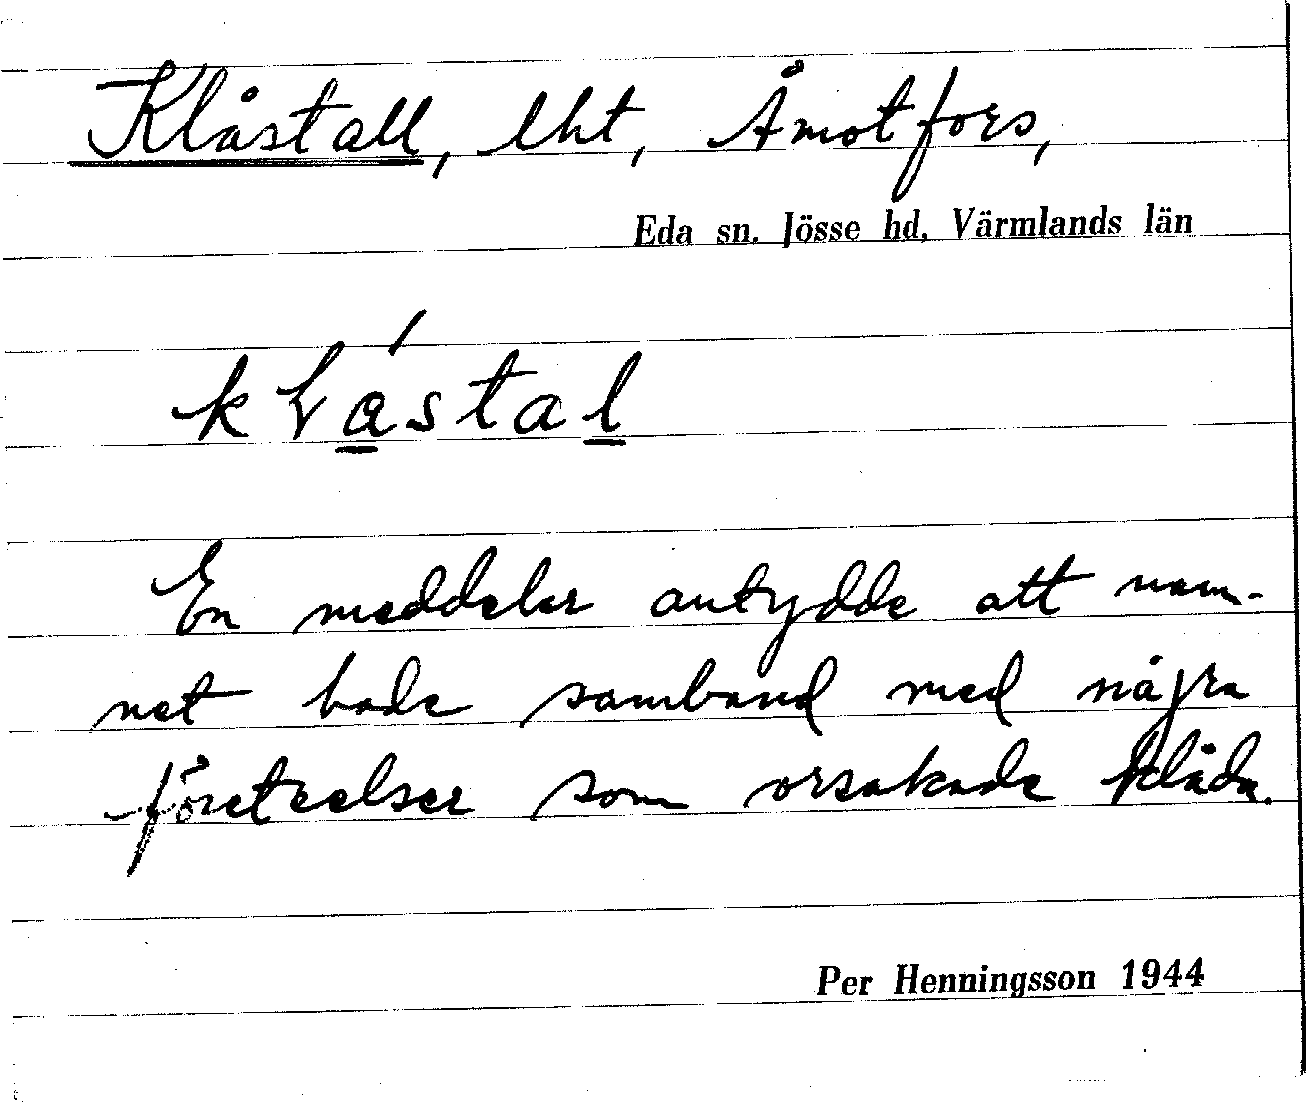 Klåstall, lht, Åmotfors,
Eda sn. Jösse hd, Värmlands län
En meddelare antydde att nam-
net hade samband med några
företeelser som orsakade klåda.
Per Henningsson 1944